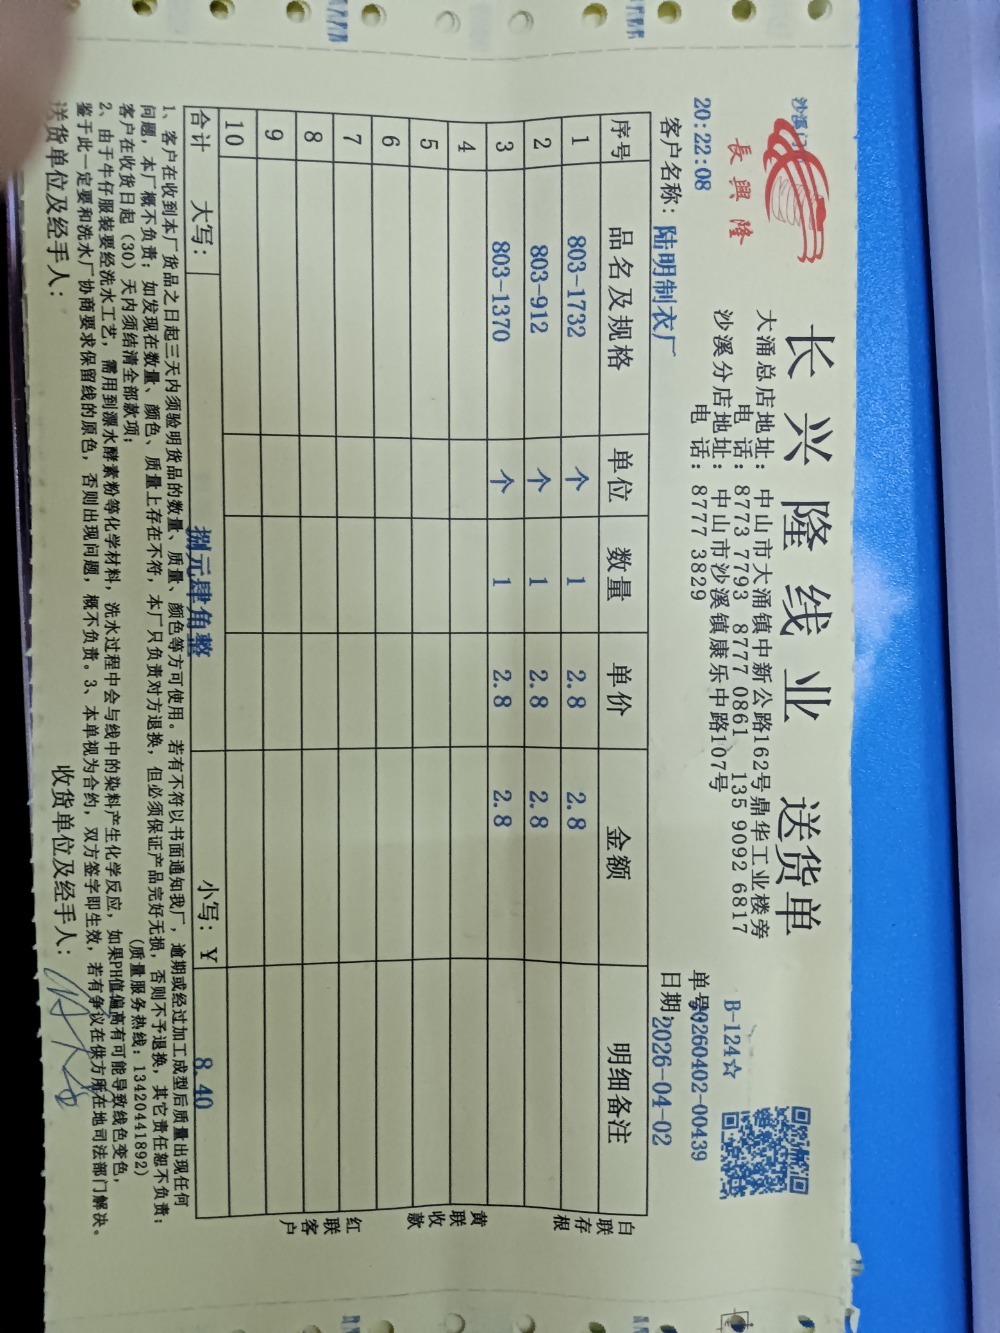 長興隆
长兴隆线业 送货单
大涌总店地址：中山市大涌镇中新公路162号鼎华工业楼旁
电 话：8773 7793 8777 0861 135 9092 6817
沙溪分店地址：中山市沙溪镇康乐中路107号
电 话：8777 3829
B-124☆
20:22:08
单号20260402-00439
客户名称：陆明制衣厂
日期：2026-04-02
序号 品名及规格 单位 数量 单价 金额 明细备注
1 803-1732 个 1 2.8 2.8
2 803-912 个 1 2.8 2.8
3 803-1370 个 1 2.8 2.8
4
5
6
7
8
9
10
合计 大写：捌元肆角整 小写：Y 8.40
白联存根
黄联收款
红联客户
1、客户在收到本厂货品之日起三天内须验明货品的数量、质量、颜色等方可使用。若有不符以书面通知我厂，逾期或经过加工成型后质量出现任何
问题，本厂概不负责；如发现在数量、颜色、质量上存在不符，本厂只负责对方退换，但必须保证产品完好无损，否则不予退换，其它责任恕不负责；
客户在收货日起（30）天内须结清全部款项； （质量服务热线：13420441892）
2、由于牛仔服装要经洗水工艺，需用到漂水酵素粉等化学材料，洗水过程中会与线中的染料产生化学反应，如果PH值偏高有可能导致线色变色，
鉴于此一定要和洗水厂协商要求保留线的原色，否则出现问题，概不负责。3、本单视为合约，双方签字即生效，若有争议在供方所在地司法部门解决。
送货单位及经手人： 收货单位及经手人：